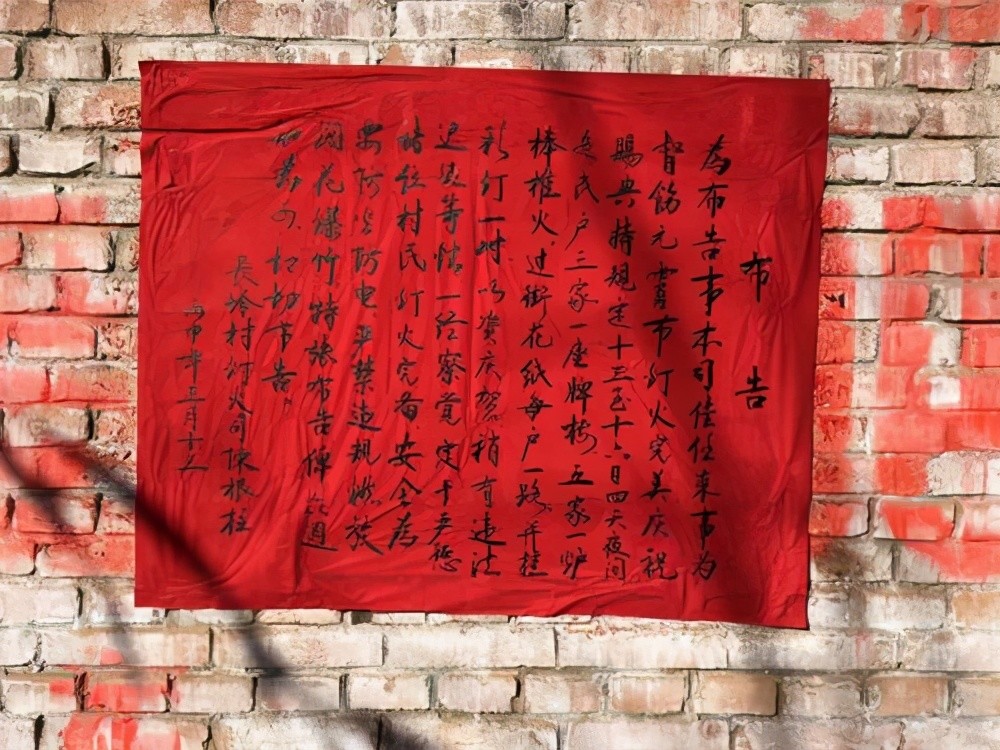 布告
为布告事本司信任来市为
督饬元宵市灯火完美庆祝
赐典持规定十三至十六日四天夜间
民户三家一座牌楼五家一炉
棒椎火过街花纸每户一路并挂
彩灯一对以资庆贺稍有违法
迟误等情一经察觉定干严惩
村民灯火完备安全为
要防火防电严禁违规燃放
烟花爆竹特张布告俾
切切布告
长岭村灯火司陈根柱
年正月十五